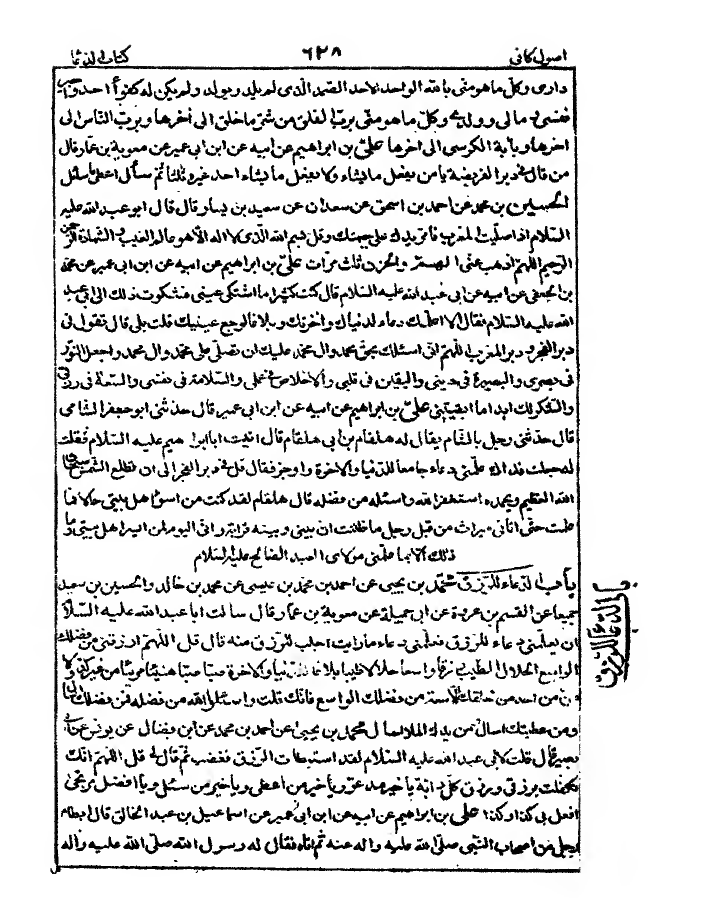 كتاب الدعا ٦٢٨ اصول كافى
دارى وكل ما هو منى بالله الواحد الاحد الصمد الذى لم يلد ولم يولد ولم يكن له كفوا احد واجير
نفسى ومالى وولدى وكل ما هو منى برب الفلق من شر ما خلق الى اخرها وبرب الناس الى
اخرها وباية الكرسى الى اخرها على بن ابراهيم عن ابيه عن ابن ابى عمير عن معوية بن عمار قال
من قال فى دبر الفريضة يا من يفعل ما يشاء ولا يفعل ما يشاء احد غيره ثلثا ثم سأل اعطى ما سئل
الحسين بن محمد عن احمد بن اسحق عن سعدان عن سعيد بن يسار قال قال ابو عبد الله عليه
السلام اذا صليت المغرب فامر يدك على جبهتك وقل بسم الله الذى لا اله الا هو عالم الغيب والشهادة الرحمن
الرحيم اللهم اذهب عنى الهم والحزن ثلث مرات على بن ابراهيم عن ابيه عن ابن ابى عمير عن محمد
بن الجعفى عن ابيه عن ابى عبد الله عليه السلام قال كنت كثيرا ما اشتكى عينى فشكوت ذلك الى ابى عبد
الله عليه السلام فقال الا اعلمك دعاء لدنياك واخرتك وبلاغا لوجع عينيك قلت بلى قال تقول فى
دبر الفجر ودبر المغرب اللهم انى اسئلك بحق محمد وال محمد عليك ان تصلى على محمد وال محمد واجعل النور
فى بصرى والبصيرة فى دينى واليقين فى قلبى والاخلاص فى عملى والسلامة فى نفسى والسعة فى رزقى
والشكر لك ابدا ما ابقيتنى على بن ابراهيم عن ابيه عن ابن ابى عمير قال حدثنى ابو جعفر الشامى
قال حدثنى رجل بالشام يقال له هلقام بن ابى هلقام قال اتيت ابا ابراهيم عليه السلام فقلت
له جعلت فداك علمنى دعاء جامعا للدنيا والاخرة واوجز فقال قل فى دبر الفجر الى ان تطلع الشمس سبحان
الله العظيم وبحمده استغفر الله واسئله من فضله قال هلقام لقد كنت من اسوء اهل بيتى حالا فما
علمت حتى اتانى ميراث من قبل رجل ما ظننت ان بينى وبينه قرابة وانى اليوم لمن ايسر اهل بيتى وما
ذلك الا بما علمنى مولاى العبد الصالح عليه السلام
باب الدعاء للرزق محمد بن يحيى عن احمد بن محمد بن عيسى عن محمد بن خالد والحسين بن سعيد
جميعا عن القسم بن عروة عن ابى جميلة عن معوية بن عمار قال سالت ابا عبد الله عليه السلام
ان يعلمنى دعاء للرزق فعلمنى دعاء ما رايت اجلب للرزق منه قال قل اللهم ارزقنى من فضلك
الواسع الحلال الطيب رزقا واسعا حلالا طيبا بلاغا للدنيا والاخرة صبا صبا هنيئا مريئا من غير كد ولا
من من احد من خلقك الا سعة من فضلك الواسع فانك قلت واسئلوا الله من فضله فمن فضلك اسئل
ومن عطيتك اسال ومن يدك الملا اسال محمد بن يحيى عن احمد بن محمد عن ابن فضال عن يونس عن ابى
بصير قال قلت لابى عبد الله عليه السلام لقد استبطات الرزق فغضب ثم قال لى قل اللهم انك
تكفلت برزقى ورزق كل دابة يا خير مدعو ويا خير من اعطى ويا خير من سئل ويا افضل مرتجى
افعل بى كذا وكذا على بن ابراهيم عن ابيه عن ابن ابى عمير عن اسماعيل بن عبد الخالق قال ابطاء
رجل من اصحاب النبى صلى الله عليه واله عنه ثم اتاه فقال له رسول الله صلى الله عليه واله
باب الدعاء للرزق